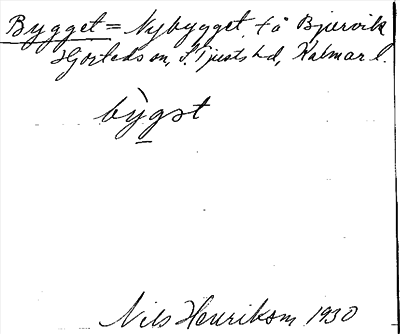 Bygget = Nybygget, tå Bjursvik
Hjorted sn, S. Tjusts hd, Kalmar l.
bỳgət
Nils Henrikson 1930